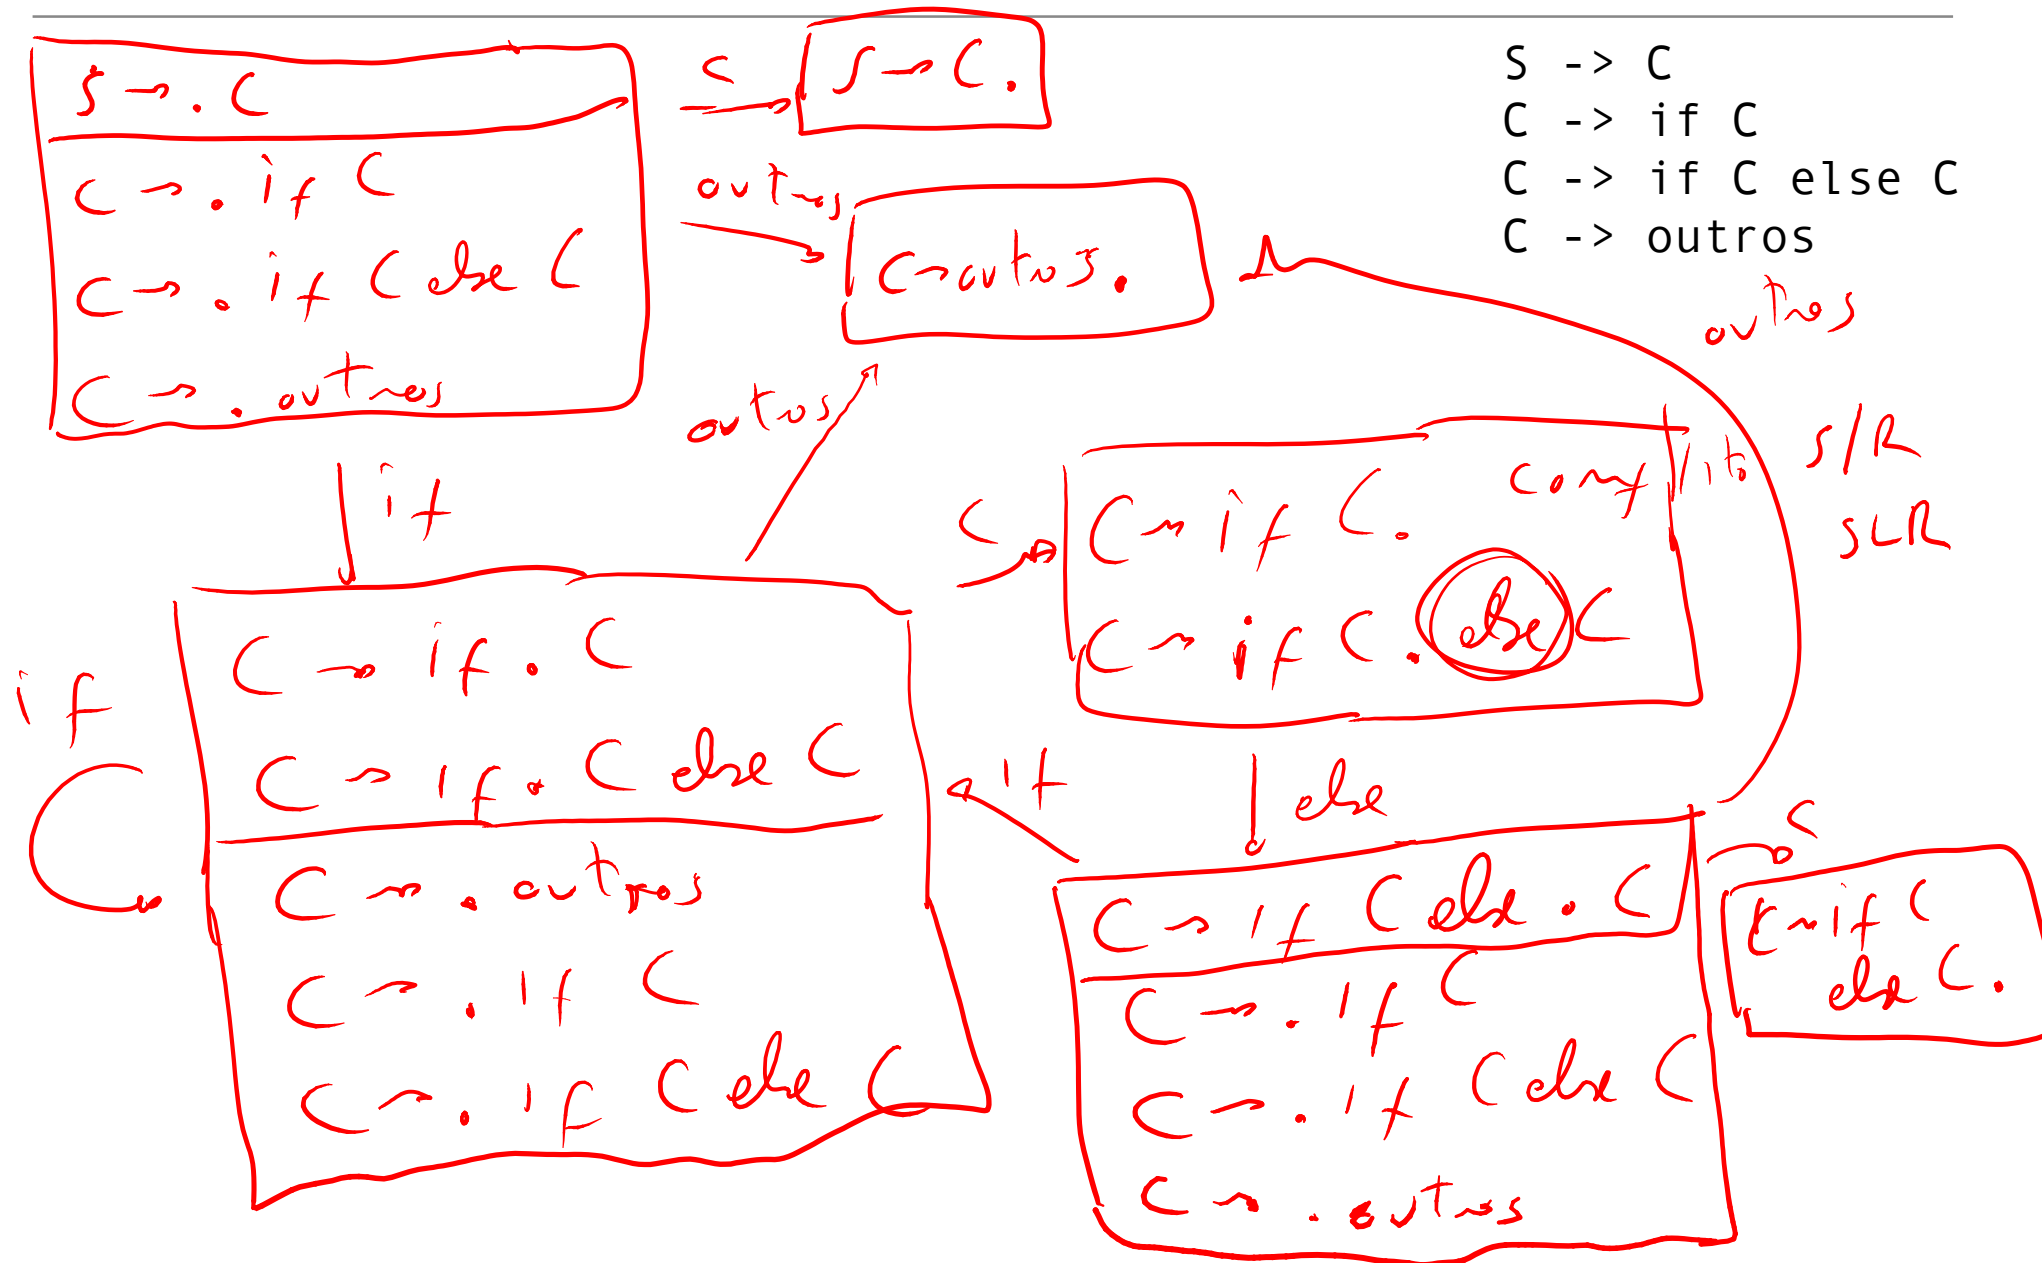 S -> C
C -> if C
C -> if C else C
C -> outros
S → . C
C → . if C
C → . if C else C
C → . outros
C
S → C.
outros
C → outros.
outros
if
outros
C
C → if C.
C → if C . else C
conflito
S/R
SLR
if
C → if . C
C → if . C else C
C → . outros
C → . if C
C → . if C else C
if
else
C → if C else . C
C → . if C
C → . if C else C
C → . outros
C
C → if C
else C.